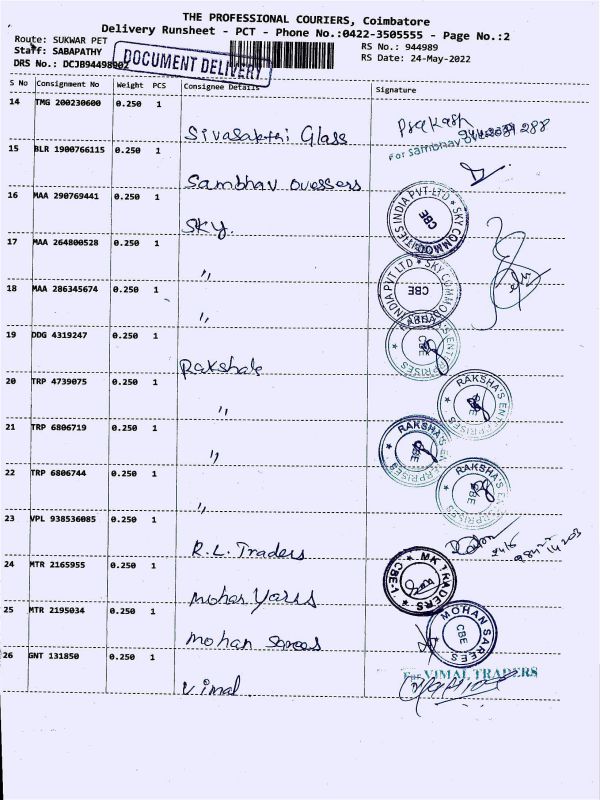 THE PROFESSIONAL COURIERS, Coimbatore
Delivery Runsheet - PCT - Phone No.:0422-3505555 - Page No.:2
Route: SUKWAR PET
RS No.: 944989
Staff: SABAPATHY
RS Date: 24-May-2022
DRS No.: DCJB94498902
DOCUMENT DELIVERY
S No Consignment No Weight PCS Consignee Details Signature
14 TMG 200230600 0.250 1 Sivasakthi Glass Prakash
15 BLR 1900766115 0.250 1 Sambhav Overseas For Sambhav Overseas
16 MAA 290769441 0.250 1 SKY. SKY COMMODITIES INDIA PVT-LTD CBE
17 MAA 264800528 0.250 1 " SKY COMMODITIES INDIA PVT LTD CBE
18 MAA 286345674 0.250 1 "
19 DDG 4319247 0.250 1 Rakshals RAKSHA'S ENTERPRISES CBE
20 TRP 4739075 0.250 1 " RAKSHA'S ENTERPRISES CBE
21 TRP 6806719 0.250 1 " RAKSHA'S ENTERPRISES CBE
22 TRP 6806744 0.250 1 " RAKSHA'S ENTERPRISES CBE
23 VPL 938536085 0.250 1 R.L. Traders
24 MTR 2165955 0.250 1 Mohan MK TRADERS CBE-1
25 MTR 2195034 0.250 1 Mohan Sarees MOHAN SAREES CBE
26 GNT 131850 0.250 1 Vimal For VIMAL TRADERS